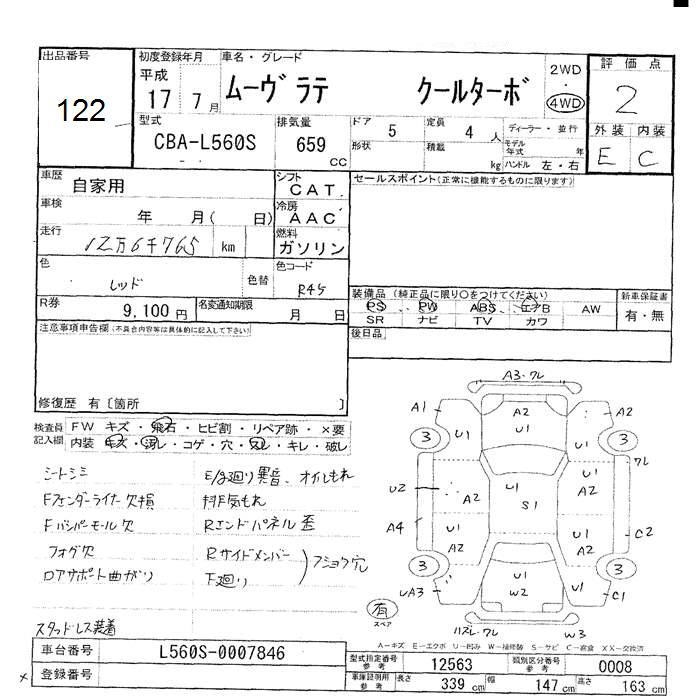 出品番号
122
初度登録年月
平成
17 7月
車名・グレード
ムーヴ ラテ クールターボ
2WD
・
4WD
評価点
2
外装 内装
E C
型式
CBA-L560S
排気量
659
CC
ドア 5
定員 4 人
形状
積載 kg
ディーラー・並行
モデル年式 年
ハンドル 左・右
車歴
自家用
車検
年 月( 日)
走行
12万6千765 km
色
レッド
色替
R券
9,100円
シフト
CAT
冷房
AAC
燃料
ガソリン
色コード
R45
名変通知期限
月 日
セールスポイント(正常に機能するものに限ります)
装備品 (純正品に限り○をつけてください)
PS PW ABS エアB AW
SR ナビ TV カワ
新車保証書
有・無
後日品
注意事項申告欄(不具合内容等は具体的に記入して下さい)
修復歴 有〔箇所 〕
検査員記入欄
FW キズ・飛石・ヒビ割・リペア跡・×要
内装 キズ・汚レ・コゲ・穴・スレ・キレ・破レ
シートシミ
Fフェンダーライナー欠損
Fバンパーモール欠
フォグ欠
ロアサポート曲がり
スタッドレス装着
E/g廻り異音、オイルもれ
排気もれ
Rエンドパネル歪
Rサイドメンバー
下廻り
フショク穴
A3・ワレ
A1
A2
A2
U1
3
U1
U1
3
ワレ
U1
U2
A2
U1
S1
U1
A2
A4
U1
A2
U1
A2
C2
3
3
U1
W2
U1
UA3
U1
C1
有
スペア
ハズレ・ワレ
W3
A-キズ E-エクボ U-凹み W-補修跡 S-サビ C-腐食 XX-交換済
車台番号
L560S-0007846
×
登録番号
型式指定番号
参考
12563
類別区分番号
参考
0008
車庫証明用
参考
長さ 339 cm
幅 147 cm
高さ 163 cm